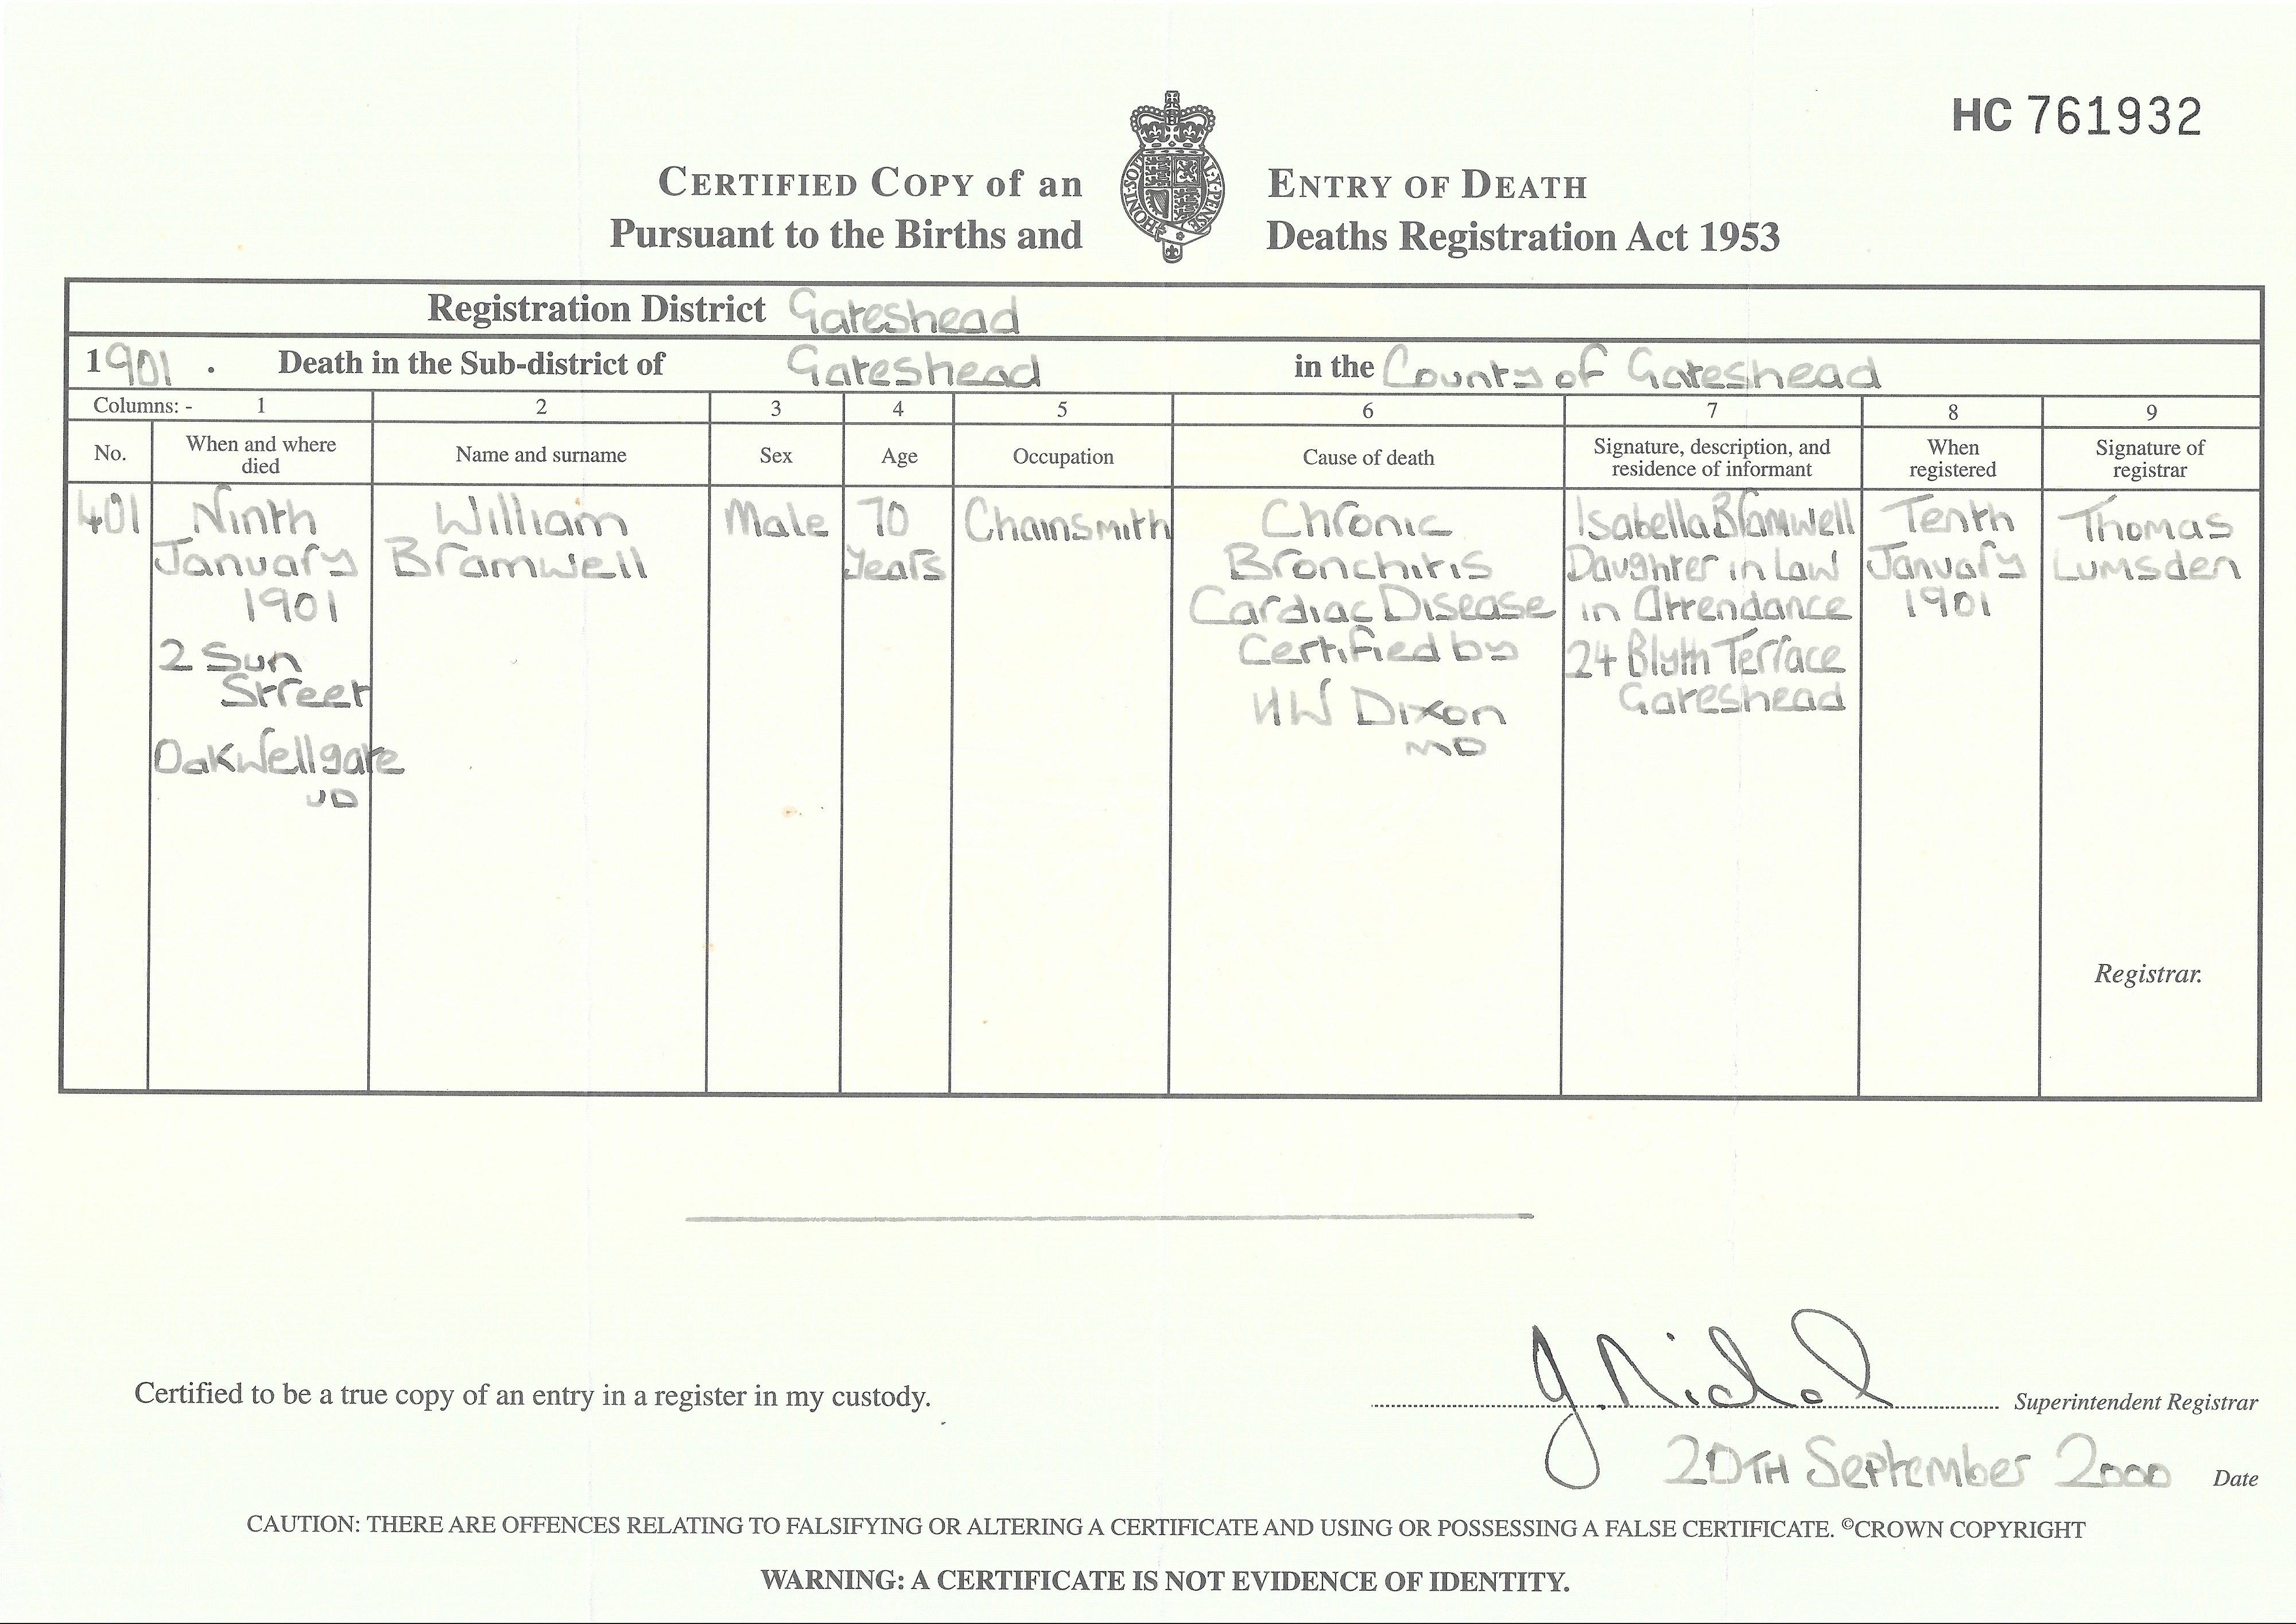 HC 761932
CERTIFIED COPY of an ENTRY OF DEATH
Pursuant to the Births and Deaths Registration Act 1953
HONI·SOIT
AL·Y·PENSE
Registration District Gateshead
1901. Death in the Sub-district of Gateshead in the County of Gateshead
Columns: - 1 2 3 4 5 6 7 8 9
No.
When and where
died
Name and surname
Sex
Age
Occupation
Cause of death
Signature, description, and
residence of informant
When
registered
Signature of
registrar
401
Ninth
January
1901
2 Sun
Street
Oakwellgate
UD
William
Bramwell
Male
70
Years
Chainsmith
Chronic
Bronchitis
Cardiac Disease
Certified by
HW Dixon
MD
Isabella Bramwell
Daughter in Law
in Attendance
24 Blyth Terrace
Gateshead
Tenth
January
1901
Thomas
Lumsden
Registrar.
Certified to be a true copy of an entry in a register in my custody.
J. Nichol Superintendent Registrar
20TH September 2000 Date
CAUTION: THERE ARE OFFENCES RELATING TO FALSIFYING OR ALTERING A CERTIFICATE AND USING OR POSSESSING A FALSE CERTIFICATE. ©CROWN COPYRIGHT
WARNING: A CERTIFICATE IS NOT EVIDENCE OF IDENTITY.